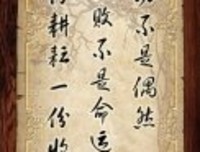 不是偶然
败不是命运
耕耘一份收